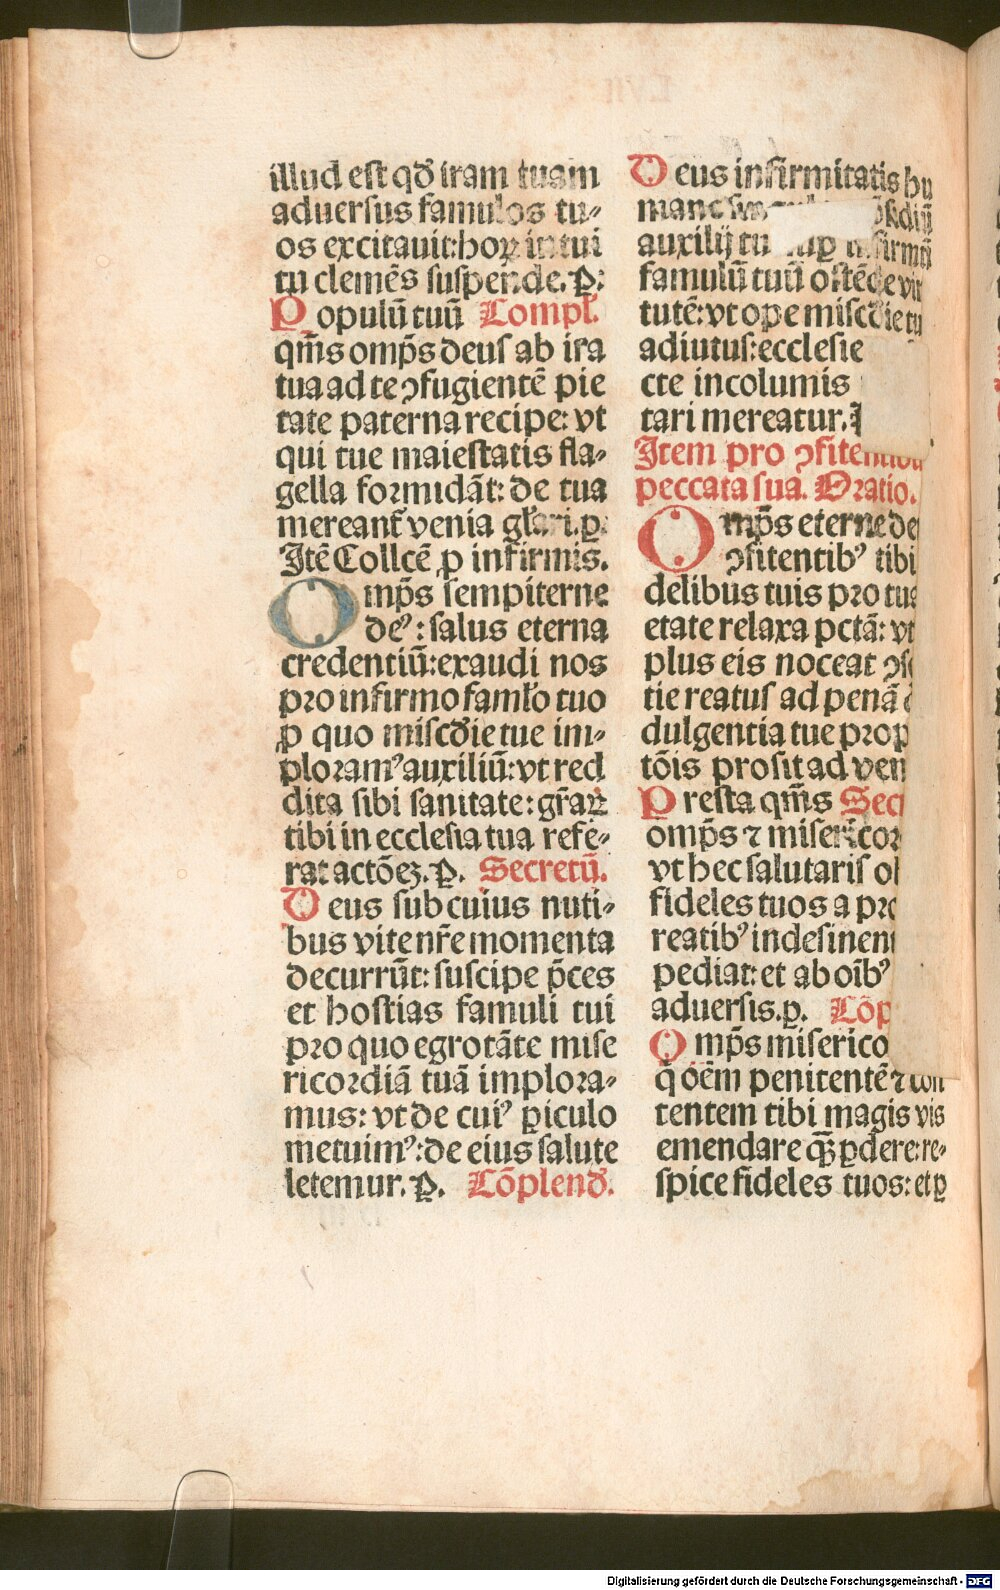 illud est qđ iram tuam
aduersus famulos tu⸗
os excitauit:hoꝝ intui
tu clemẽs suspende.ꝑ:
Populũ tuũ Compl̃.
qm̃s omp̃s deus ab ira
tua ad te ꝯfugientẽ pie
tate paterna recipe: vt
qui tue maiestatis fla⸗
gella formidãt: de tua
mereanť venia
Itẽ Collcẽ ꝓ infirmis.
Omp̃s sempiterne
deꝰ: salus eterna
credentiũ:exaudi nos
pro infirmo famło tuo
ꝓ quo miscđie tue im⸗
ploramꝰ auxiliũ:vt red
dita sibi sanitate:gr̃aꝝ
tibi in ecclesia tua refe⸗
rat actõeꝫ.ꝑ. Secretũ.
Deus sub cuius nuti⸗
bus vite nr̃e momenta
decurrũt: suscipe p̃ces
et hostias famuli tui
pro quo egrotãte mise
ricordiã tuã implora⸗
mus: vt de cuiꝰ ꝑiculo
metuimꝰ:de eius salute
letemur.ꝑ. Cõplenđ.
Deus infirmitatis hu
mane
auxilij tu
famulũ tuũ ostẽde vir
tutẽ:vt ope miscđie tu
adiutus:ecclesie
cte incolumis
tari mereatur.
Item pro ꝯfitentibu
peccata sua. Oratio.
Omp̃s eterne de
ꝯfitentibꝰ tibi
delibus tuis pro tua
etate relaxa pctã: vt
plus eis noceat ꝯsc
tie reatus ad penã
dulgentia tue prop
tõis prosit ad ven
Presta qm̃s Sec
omp̃s ⁊ misericor
vt hec salutaris ob
fideles tuos a pro
reatibꝰ indesinent
pediat:et ab oĩbꝰ
aduersis.ꝑ. Cõp
Omp̃s miserico
q̃ oẽm penitentẽ ⁊ con
tentem tibi magis vis
emendare qꝫ̃ ꝑdere:re⸗
spice fideles tuos: et ꝑ
Digitalisierung gefördert durch die Deutsche Forschungsgemeinschaft - DFG